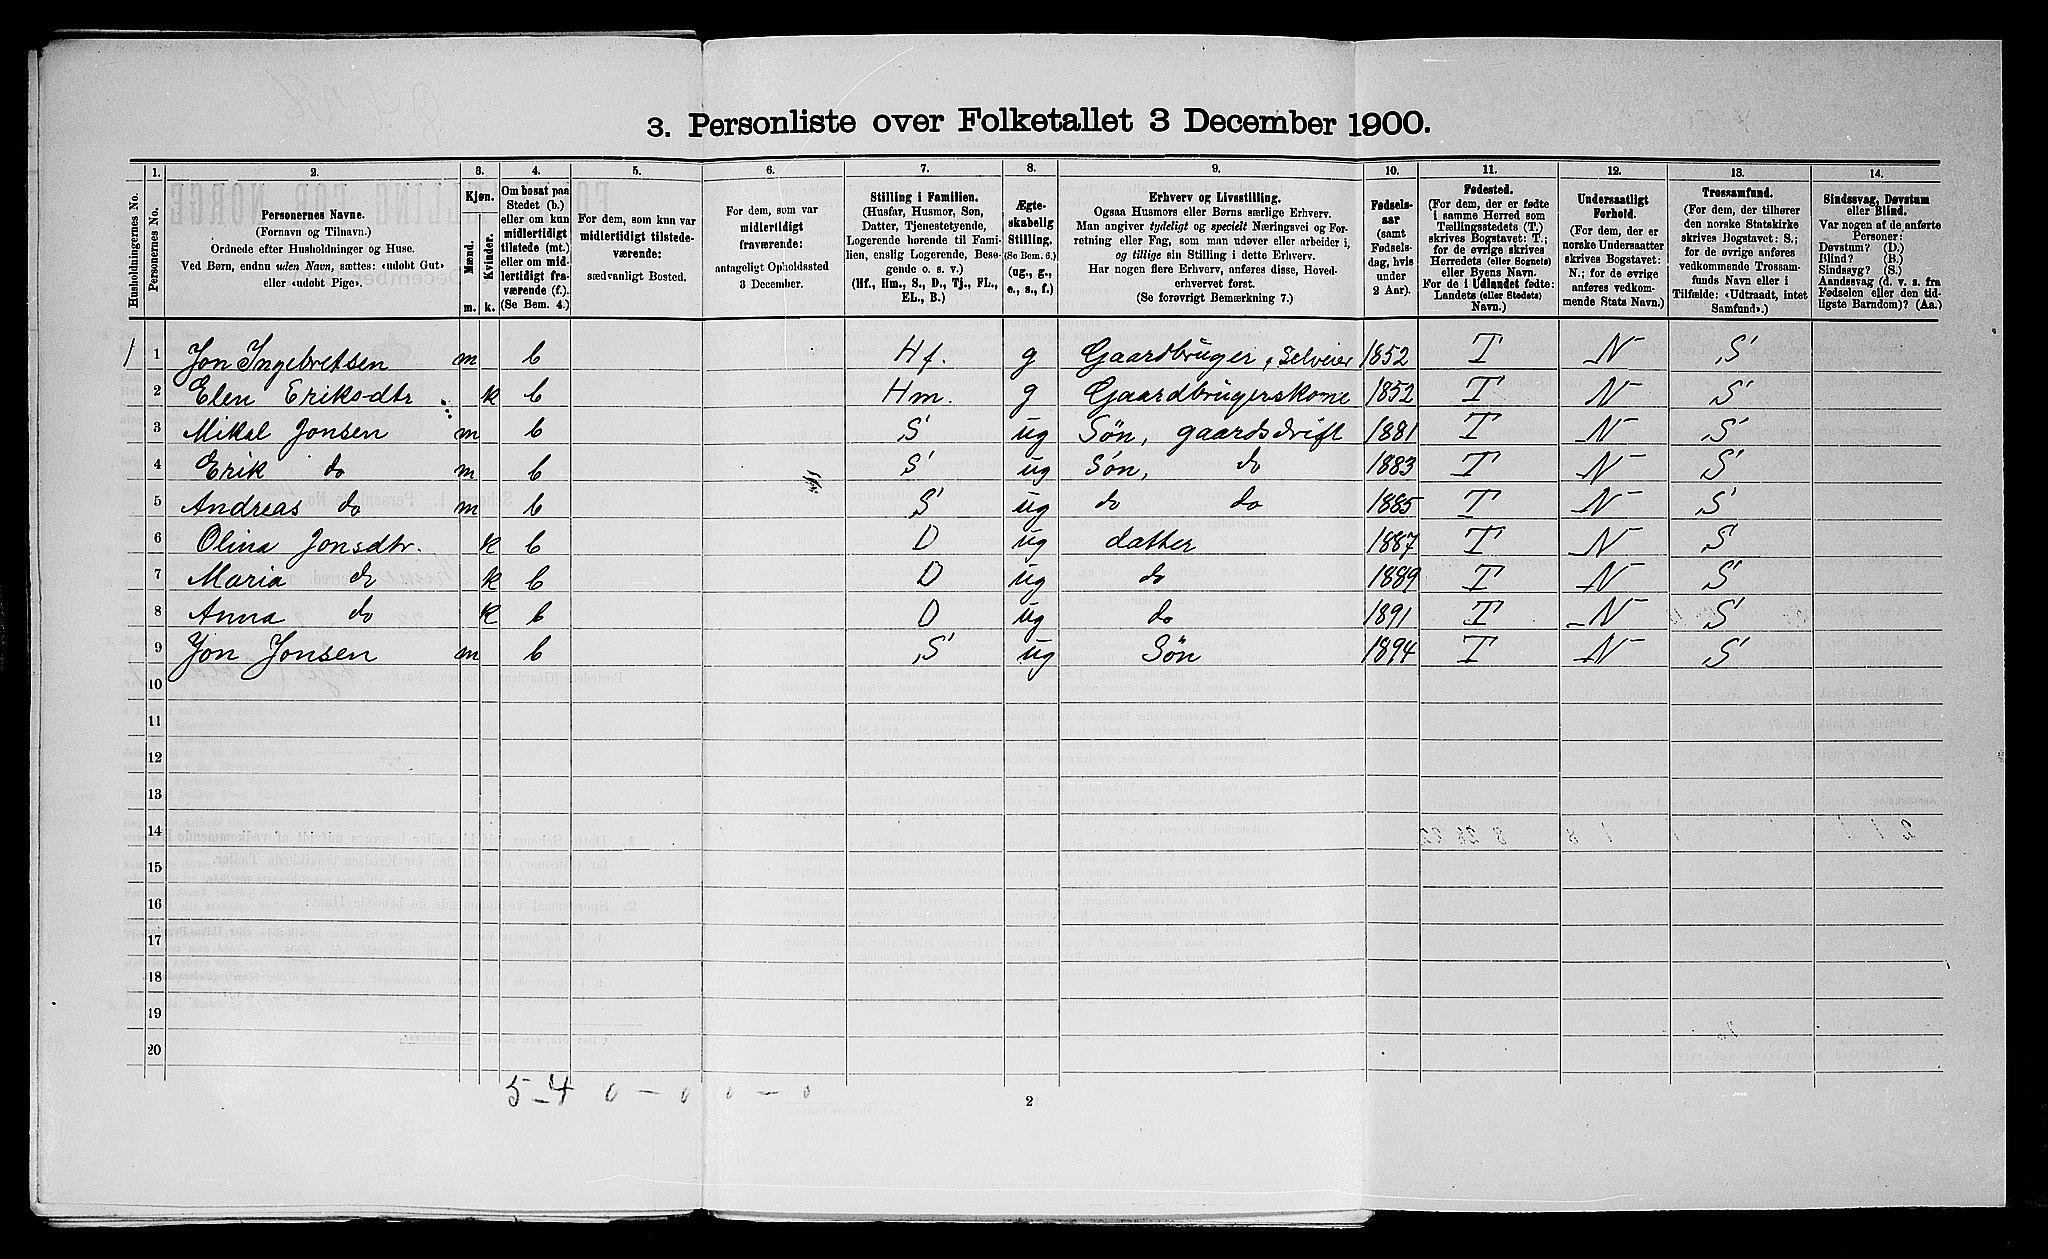 3. Personliste over Folketallet 3 December 1900.
Husholdningernes No.
1.
Personernes No.
2.
Personernes Navne.
(Fornavn og Tilnavn.)
Ordnede efter Husholdninger og Huse.
Ved Børn, endnu uden Navn, sættes: «udøbt Gut»
eller «udøbt Pige».
3.
Kjøn.
Mænd.
Kvinder.
m. k.
4.
Om bosat paa
Stedet (b.)
eller om kun
midlertidigt
tilstede (mt.)
eller om mid-
lertidigt fra-
værende (f.)
(Se Bem. 4.)
5.
For dem, som kun var
midlertidigt tilstede-
værende:
sædvanligt Bosted.
6.
For dem, som var
midlertidigt
fraværende:
antageligt Opholdssted
3 December.
7.
Stilling i Familien.
(Husfar, Husmor, Søn,
Datter, Tjenestetyende,
Logerende hørende til Fami-
lien, enslig Logerende, Besø-
gende o. s. v.)
(Hf., Hm., S., D., Tj., FL.,
EL., B.)
8.
Ægte-
skabelig
Stilling.
(Se Bem. 6.)
(ug., g.,
e., s., f.)
9.
Erhverv og Livsstilling.
Ogsaa Husmors eller Børns særlige Erhverv.
Man angiver tydeligt og specielt Næringsvei og For-
retning eller Fag, som man udøver eller arbeider i,
og tillige sin Stilling i dette Erhverv.
Har nogen flere Erhverv, anføres disse, Hoved-
erhvervet først.
(Se forøvrigt Bemærkning 7.)
10.
Fødsels-
aar
(samt
Fødsels-
dag, hvis
under
2 Aar).
11.
Fødested.
(For dem, der er fødte
i samme Herred som
Tællingsstedets (T.)
skrives Bogstavet: T.;
for de øvrige skrives
Herredets (eller Sognets)
eller Byens Navn.
For de i Udlandet fødte:
Landets (eller Stedets)
Navn.)
12.
Undersaatligt
Forhold.
(For dem, der er
norske Undersaatter
skrives Bogstavet:
N.; for de øvrige
anføres vedkom-
mende Stats Navn.)
13.
Trossamfund.
(For dem, der tilhører
den norske Statskirke
skrives Bogstavet: S.;
for de øvrige anføres
vedkommende Trossam-
funds Navn eller i
Tilfælde: «Udtraadt, intet
Samfund».)
14.
Sindssvag, Døvstum
eller Blind.
Var nogen af de anførte
Personer:
Døvstum? (D.)
Blind? (B.)
Sindssyg? (S.)
Aandssvag (d. v. s. fra
Fødselen eller den tid-
ligste Barndom)? (Aa.)
1 1 Jon Ingebretsen m b Hf. g Gaardbruger, Selveier 1852 T N S
2 Elen Eriksdtr k b Hm. g Gaardbrugerskone 1852 T N S
3 Mikal Jonsen m b S ug Søn, gaardsdrift 1881 T N S
4 Erik do m b S ug Søn, do 1883 T N S
5 Andreas do m b S ug do do 1885 T N S
6 Olina Jonsdtr. k b D ug datter 1887 T N S
7 Maria do k b D ug do 1889 T N S
8 Anna do k b D ug do 1891 T N S
9 Jon Jonsen m b S ug Søn 1894 T N S
10
11
12
13
14
15
16
17
18
19
20
5-4 0 - 0 0 - 0
2